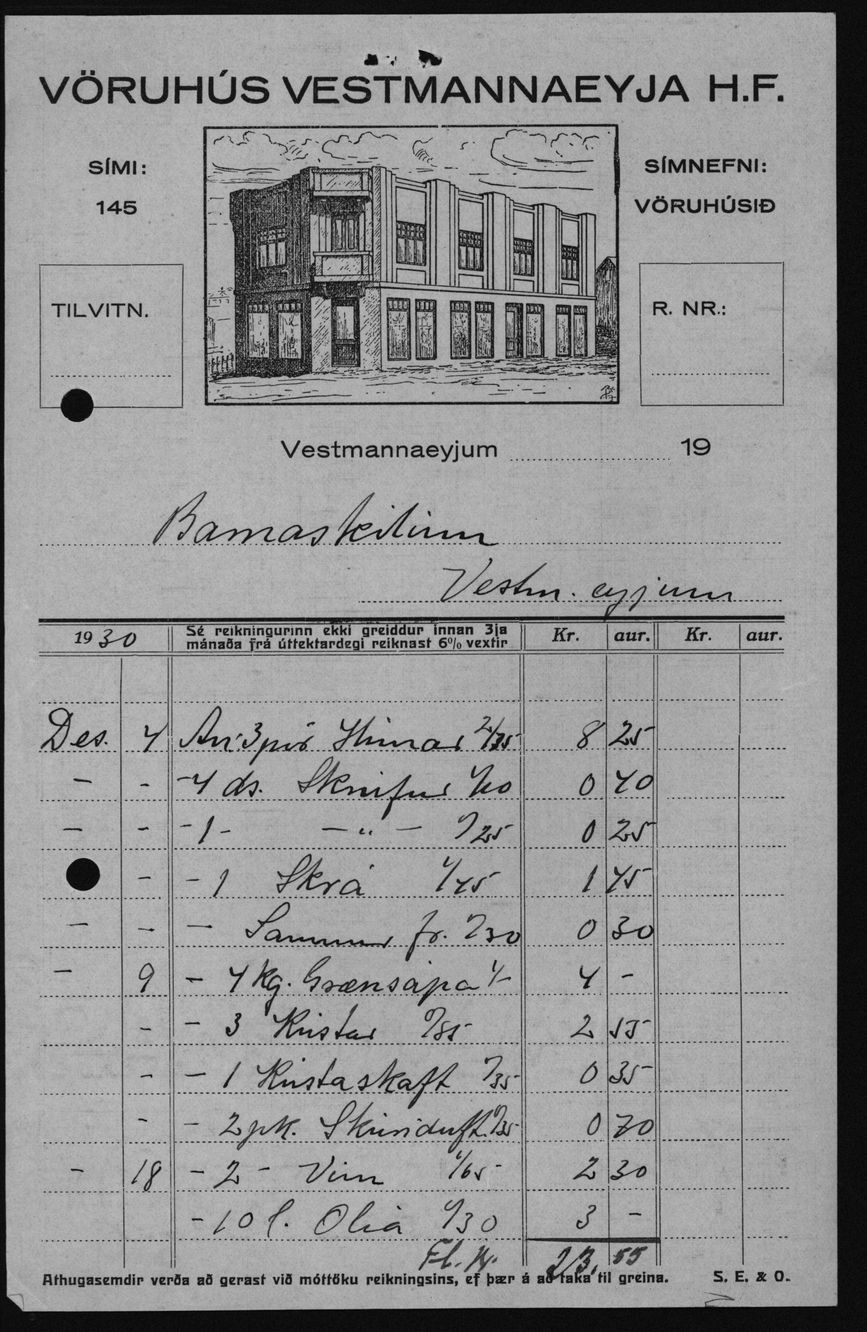 VÖRUHÚS VESTMANNAEYJA H.F.
SÍMI:
145
SÍMNEFNI:
VÖRUHÚSIÐ
TILVITN.
R. NR.:
Vestmannaeyjum 19
Barnaskólinn
Vestm.eyjum
1930 Sé reikningurinn ekki greiddur innan 3ja mánaða frá úttektardegi reiknast 6% vextir Kr. aur. Kr. aur.
Des. 4 An: 3 pör Hinar 2/75 8 25
- - - 4 ds. Skrúfur 1/10 0 40
- - - 1 - - " - 0/25 0 25
- - 1 Skrá 1/45 1 45
- - - fr. 0/30 0 30
- 9 - 4 kg. Grænsápa 1/- 4 -
- - 3 Kústar 0/85 2 55
- - 1 Kústaskaft 0/35 0 35
- - 2 pk. Skúriduft 0/35 0 70
- 18 - 2 - Vim 1/65 2 30
- 10 l. Olía 0/30 3 -
Fl. Kr. 23,55
Athugasemdir verða að gerast við móttöku reikningsins, ef þær á að taka til greina. S. E. & O.